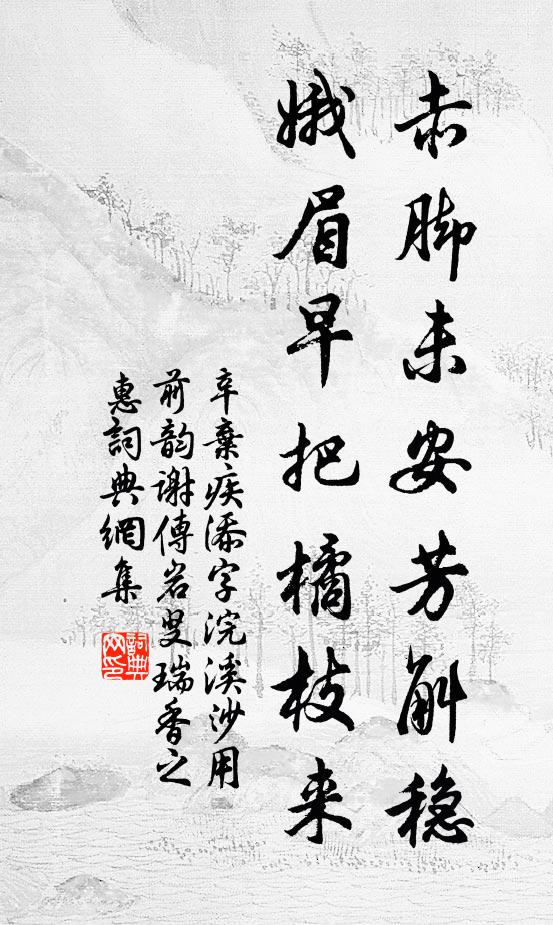 赤脚未安芳斛稳
娥眉早把橘枝来
辛棄疾添字浣溪沙用
前韵谢傅岩叟瑞香之
惠詞典網集
詞典网印